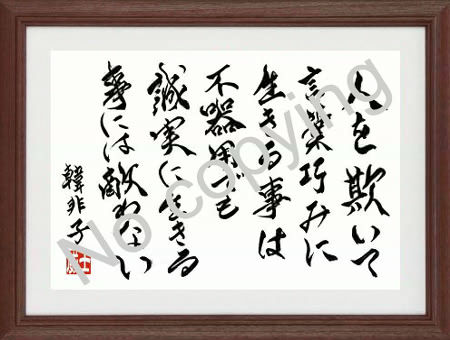 人を欺いて
言葉巧みに
生きる事は
不器用でも
誠実に生きる
事には敵わない
韓非子
No copying